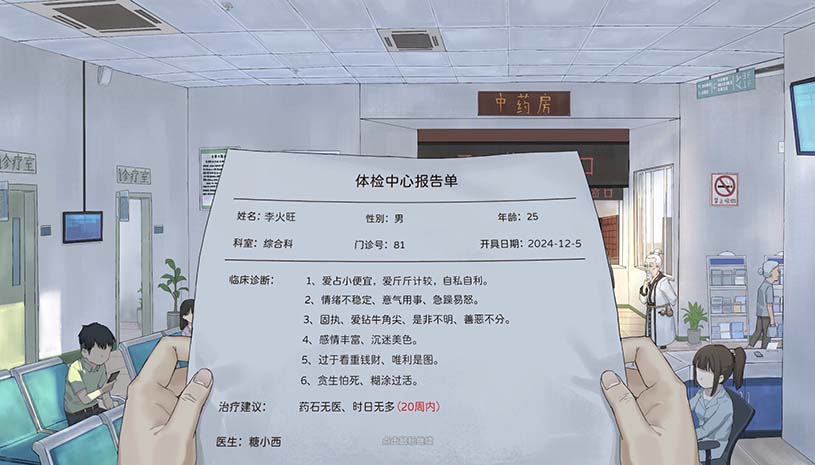 中药房
诊疗室
诊疗室
体检中心报告单
姓名：李火旺 性别：男 年龄：25
科室：综合科 门诊号：81 开具日期：2024-12-5
临床诊断： 1、爱占小便宜，爱斤斤计较，自私自利。
2、情绪不稳定、意气用事、急躁易怒。
3、固执、爱钻牛角尖、是非不明、善恶不分。
4、感情丰富、沉迷美色。
5、过于看重钱财、唯利是图。
6、贪生怕死、糊涂过活。
治疗建议： 药石无医、时日无多（20周内）
医生：糖小西
点击鼠标继续